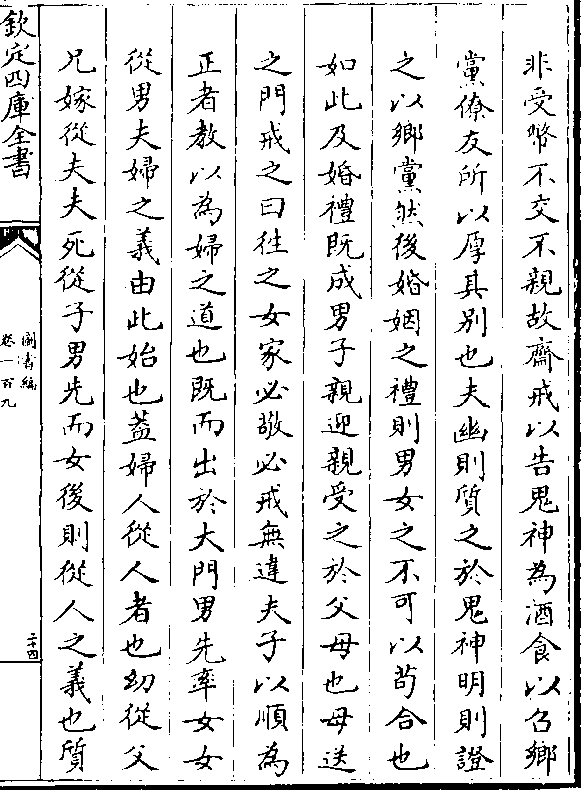 非受幣不交不親故齋戒以告鬼神為酒食以召鄉
黨僚友所以厚其別也夫幽則質之於鬼神明則證
之以鄉黨然後婚姻之禮則男女之不可以苟合也
如此及婚禮既成男子親迎親受之於父母也母送
之門戒之曰往之女家必敬必戒無違夫子以順為
正者教以為婦之道也既而出於大門男先率女女
從男夫婦之義由此始也葢婦人從人者也幼從父
兄嫁從夫夫死從子男先而女後則從人之義也質
欽定四庫全書
圖書編
卷一百九
二十四